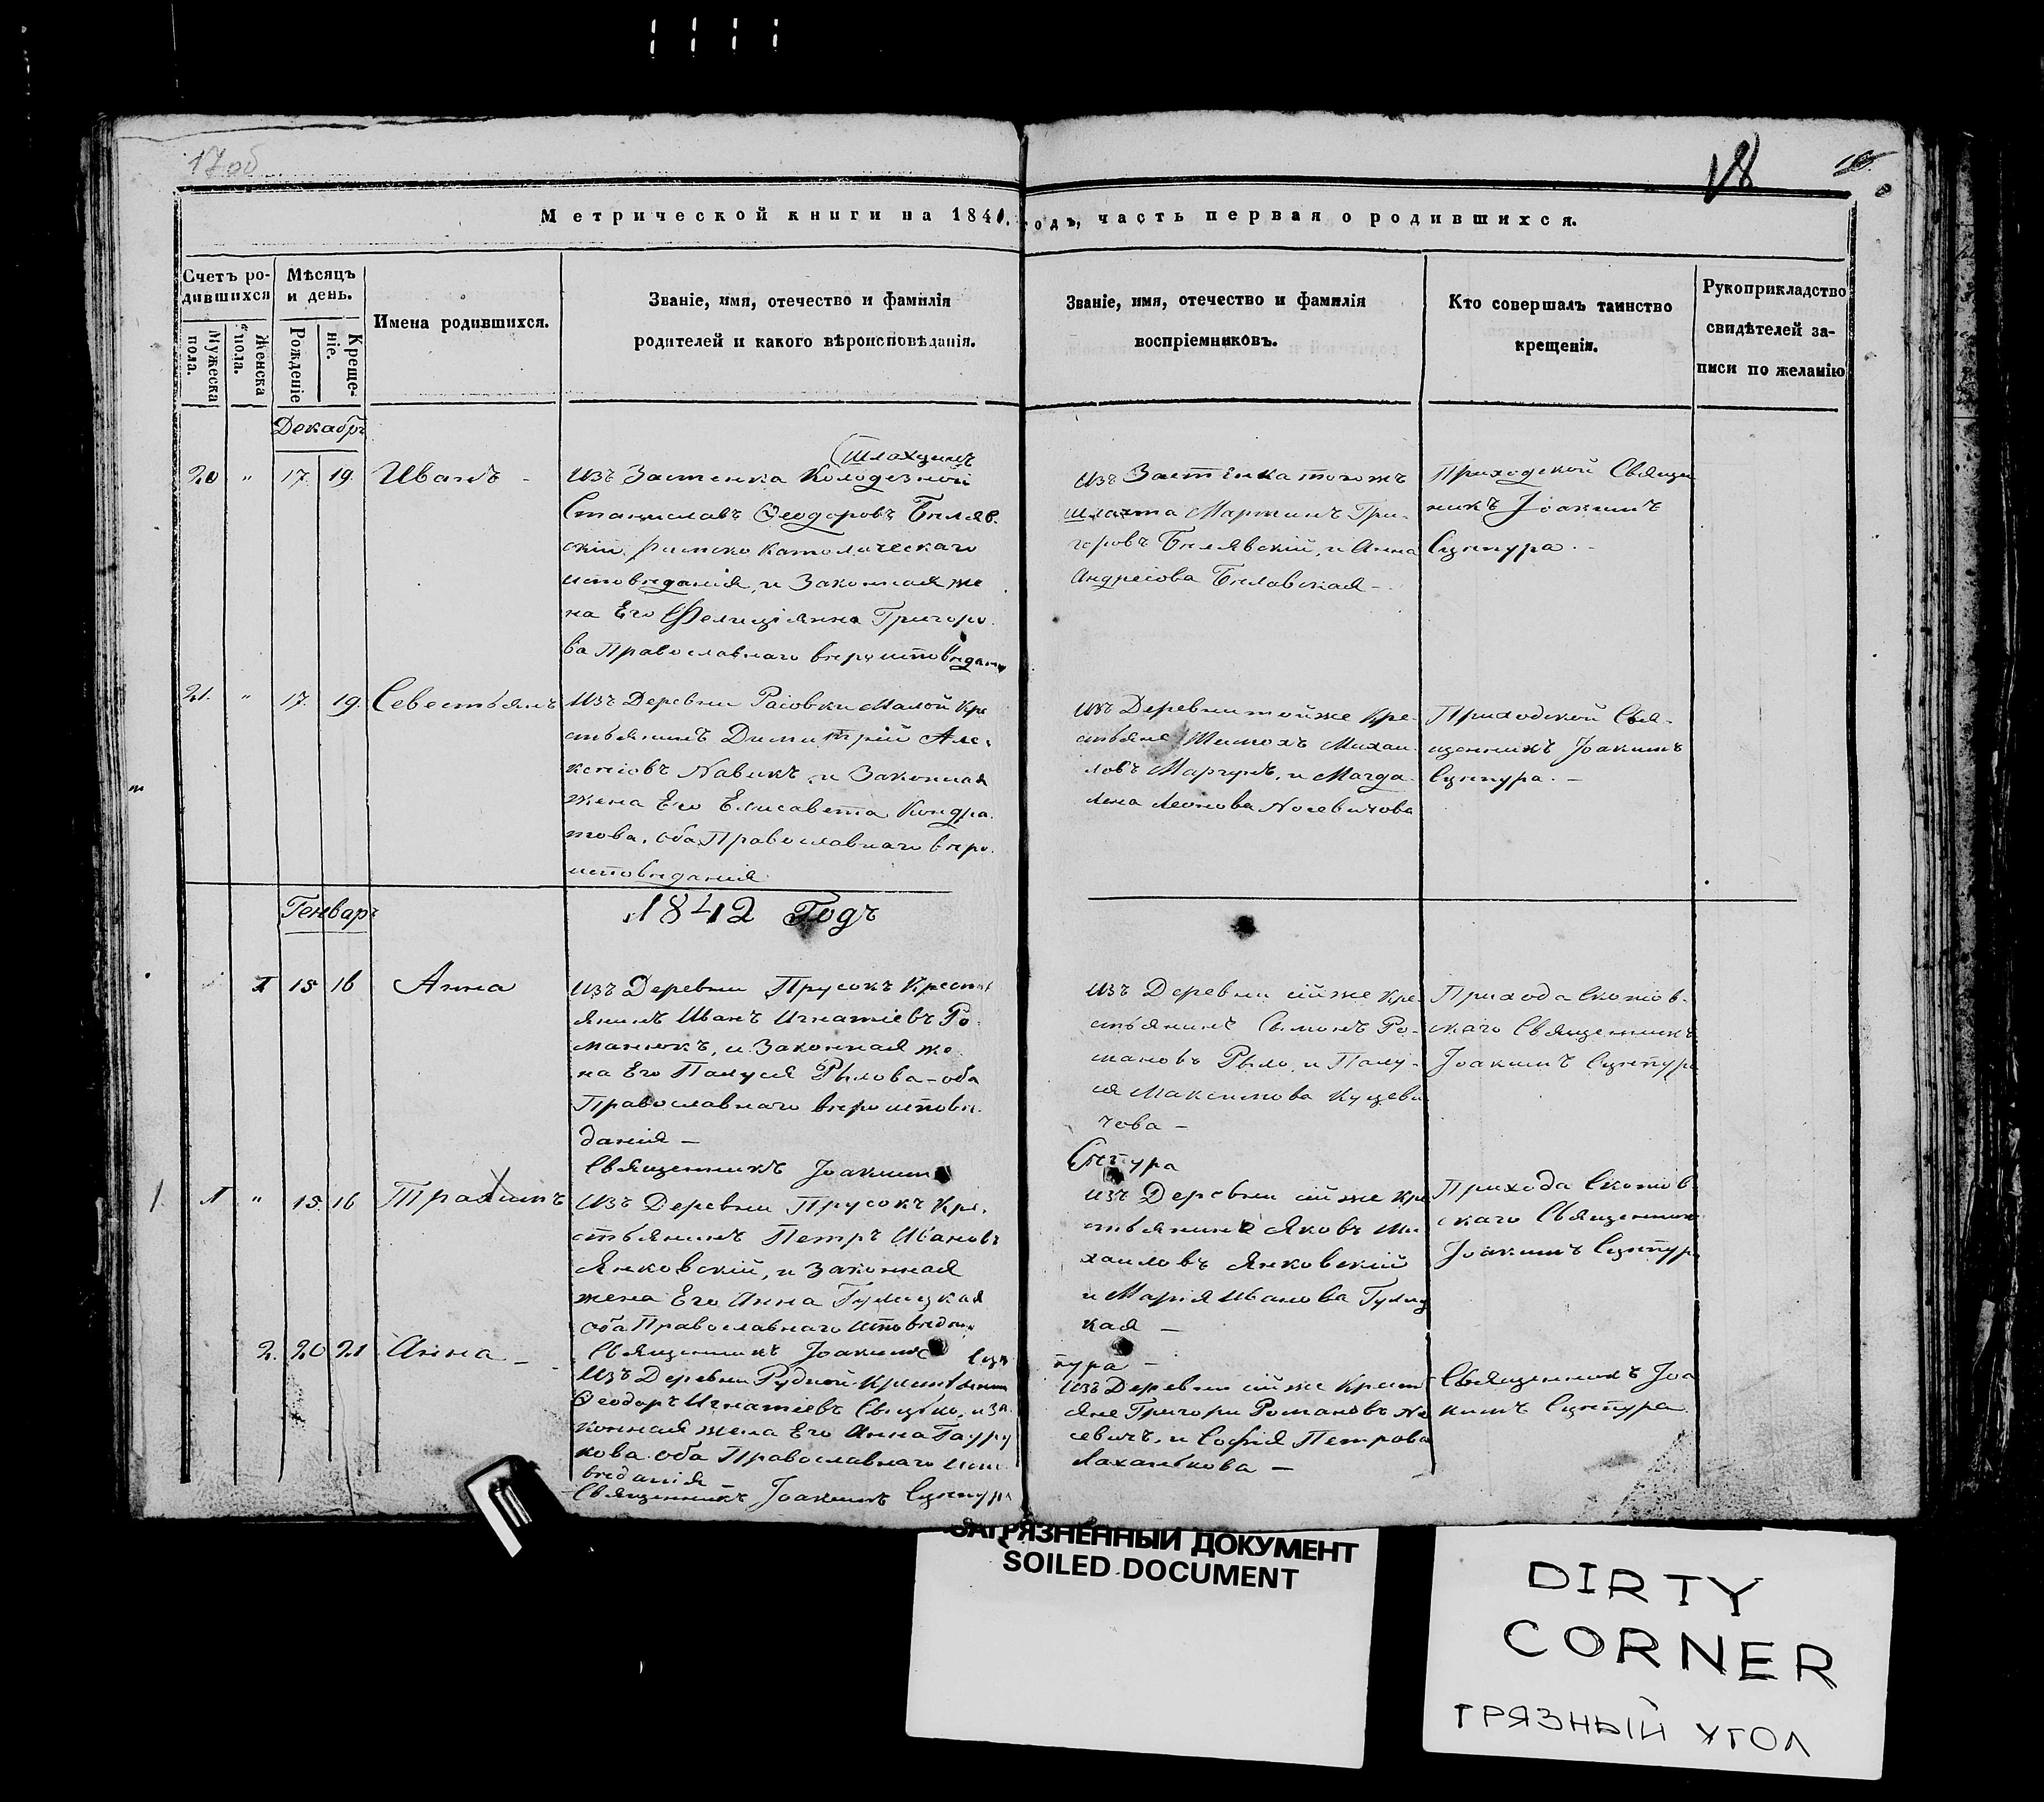 17 об
18
Метрической книги на 1841. годъ, часть первая о родившихся.
Счетъ ро-
дившихся
Мужеска
пола.
Женска
пола.
Мѣсяцъ
и день.
Рожденіе
Креще-
ніе.
Имена родившихся.
Званіе, имя, отечество и фамилія
родителей и какого вѣроисповѣданія.
Званіе, имя, отечество и фамилія
воспріемниковъ.
Кто совершалъ таинство
крещенія.
Рукоприкладство
свидѣтелей за-
писи по желанію
Декабрь
20 " 17. 19. Иванъ -
Шляхцицъ
Изъ Застенка Колодезной
Станиславъ Ѳеодоровъ Биляв-
скій Римско Католическаго
исповеданія, и Законная же
на Его Фелиціянна Григоро
ва Православнаго вероисповедан
Изъ Застенка тогожъ
шляхта Мартинъ Гри-
горовъ Билявскій, и Анна
Андреіова Билавская -
Приходской Свяще
никъ Іоакимъ
Сцепура. -
21. " 17. 19. Севестьянъ
Изъ Деревни Расовки Малой Кре
стьянинъ Димитрій Але-
ксеіовъ Навикъ, и Законная
жена Его Елисавета Кондра-
това, оба Православнаго веро-
исповеданія
Изъ Деревни тойже Кре-
стьяне Тимохъ Михаи-
ловъ Маргунъ, и Магда-
лена Леонова Носевичова
Приходской Свя-
щенникъ Іоакимъ
Сцепура. -
Генварь
1842 Годъ
1 15 16 Анна
Изъ Деревни Прусокъ Крестьян
янинъ Иванъ Игнатіевъ Ро-
манюкъ, и Законная же
на Его Палуся Рылова - оба
Православнаго вероисповѣ-
данія -
Священникъ Іоакимъ
Сцепура
Изъ Деревни сійже Кре-
стьянинъ Сымонъ Ро-
мановъ Рыло, и Палу-
ся Максимова Куцеви
чова -
Прихода Скотов-
скаго Священникъ
Іоакимъ Сцепура
1. 1 " 15. 16 Трахимъ
Изъ Деревни Прусокъ Кре-
стьянинъ Петръ Ивановъ
Янковскій, и Законная
жена Его Анна Гулицкая
оба Православнаго исповедан
Священникъ Іоакимъ Сце
пура -
Изъ Деревни сійже Кре
стьянине Яковъ Ми-
хаиловъ Янковскій
и Марія Иванова Гулиц
кая -
Прихода Скотов-
скаго Священник
Іоакимъ Сцепур
2. 20 21 Анна -
Изъ Деревни Рудной Крестьянин
Ѳеодоръ Игнатіевъ и за
конная жена Его Анна Гауру
кова оба Православнаго испо
веданія -
Священникъ Іоакимъ Сцепура
Изъ Деревни сійже Крест
яне Григори Романовъ Но
севичъ, и Софія Петрова
Лаханькова -
Священникъ Іоа
кимъ Сцепура
ЗАГРЯЗНЕННЫЙ ДОКУМЕНТ
SOILED DOCUMENT
DIRTY
CORNER
ГРЯЗНЫЙ УГОЛ